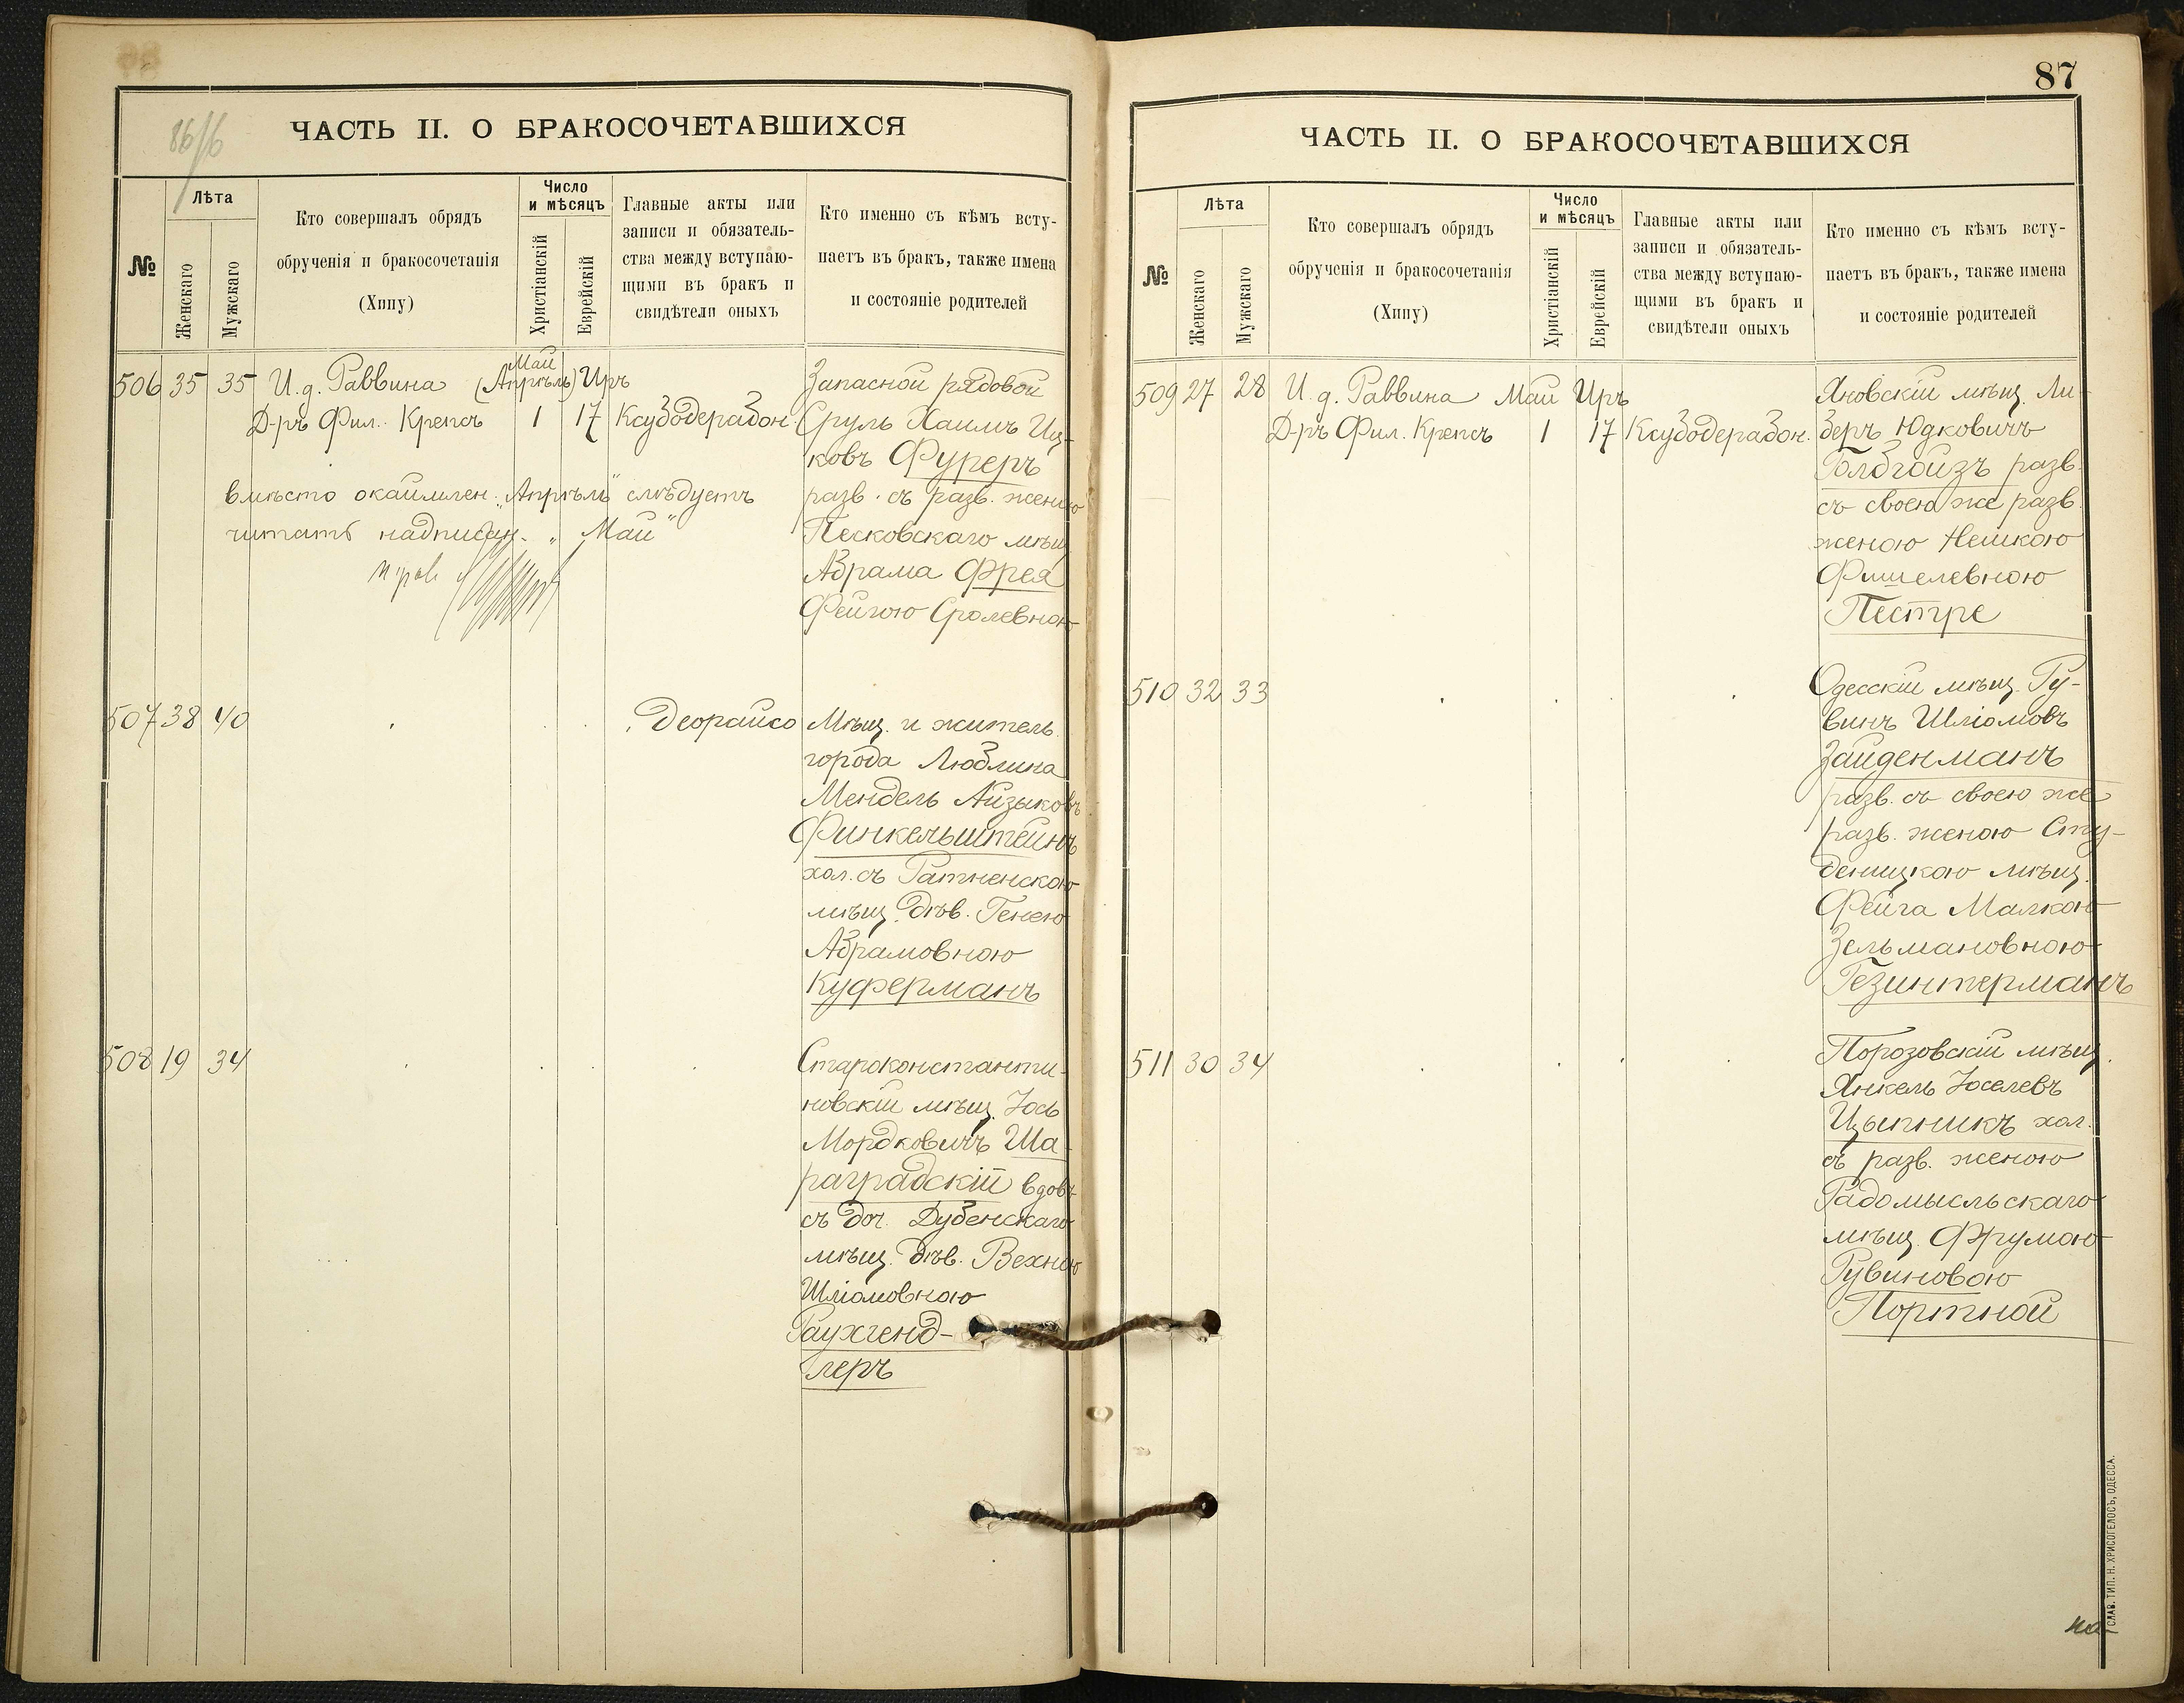 86/6
ЧАСТЬ II. О БРАКОСОЧЕТАВШИХСЯ
№
Лѣта
Женскаго
Мужскаго
Кто совершалъ обрядъ
обрученія и бракосочетанія
(Хипу)
Число
и мѣсяцъ
Христіанскій
Еврейскій
Главные акты или
записи и обязатель-
ства между вступаю-
щими въ бракъ и
свидѣтели оныхъ
Кто именно съ кѣмъ всту-
паетъ въ бракъ, также имена
и состояніе родителей
506 35 35 И. д. Раввина
Д-ръ Фил. Крепсъ
Май
(Апрѣль) Иръ
1 17 Ксубодерабон.
Запасной рядовой
Сруль Хаимъ Иц-
ковъ Фуреръ
разв. съ разв. женою
Песковскаго мѣщ.
Абрама Фрея
Фейгою Сролевною
вмѣсто окаймлен. „Апрѣль" слѣдуетъ
читать надписан. „Май"
507 38 40 Деорайсо
Мѣщ. и житель
города Люблина
Мендель Айзыковъ
Финкельштейнъ
хол. съ Ратненскою
мѣщ. дѣв. Генею
Абрамовною
Куферманъ
508 19 34
Староконстанти-
новскій мѣщ. Іось
Мордковичъ Ша-
раградскій вдов.
съ доч. Дубенскаго
мѣщ. дѣв. Рехнею
Шліомовною
Раухгенд-
леръ
87
ЧАСТЬ II. О БРАКОСОЧЕТАВШИХСЯ
№
Лѣта
Женскаго
Мужскаго
Кто совершалъ обрядъ
обрученія и бракосочетанія
(Хипу)
Число
и мѣсяцъ
Христіанскій
Еврейскій
Главные акты или
записи и обязатель-
ства между вступаю-
щими въ бракъ и
свидѣтели оныхъ
Кто именно съ кѣмъ всту-
паетъ въ бракъ, также имена
и состояніе родителей
509 27 28 И. д. Раввина Май Иръ
Д-ръ Фил. Крепсъ 1 17 Ксубодерабон.
Яновскій мѣщ. Ли-
беръ Юдковичъ
Голдгойзъ разв.
съ своею же разв.
женою Нешкою
Фишелевною
Пестре
510 32 33
Одесскій мѣщ. Ру-
винъ Шліомовъ
Зайденманъ
разв. съ своею же
разв. женою Сту-
деницкою мѣщ.
Фейга Малкою
Зельмановною
Гезинтерманъ
511 30 34
Порозовскій мѣщ.
Янкель Іоселевъ
Цыпникъ хол.
съ разв. женою
Радомысльскаго
мѣщ. Фрумою
Рувиновою
Портной
СЛАВ. ТИП. Н. ХРИСОГЕЛОСЪ, ОДЕССА.